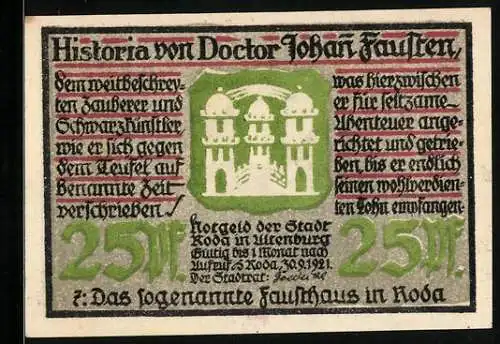 Historia von Doctor Johañ Fausten,
dem weitbeschrey-
ten Zauberer und
Schwarzkünstler,
wie er sich gegen
dem Teufel auf
benannte Zeit
verschrieben /
was hierzwischen
er für seltzame
Abenteuer ange-
richtet und getrie-
ben, bis er endlich
seinen wohlverdien-
ten Lohn empfangen.
25 Pf.
Notgeld der Stadt
Roda in Altenburg
Gültig bis 1 Monat nach
Aufruf / Roda, 30.9.1921.
Der Stadtrat:
25 Pf.
7: Das sogenannte Fausthaus in Roda